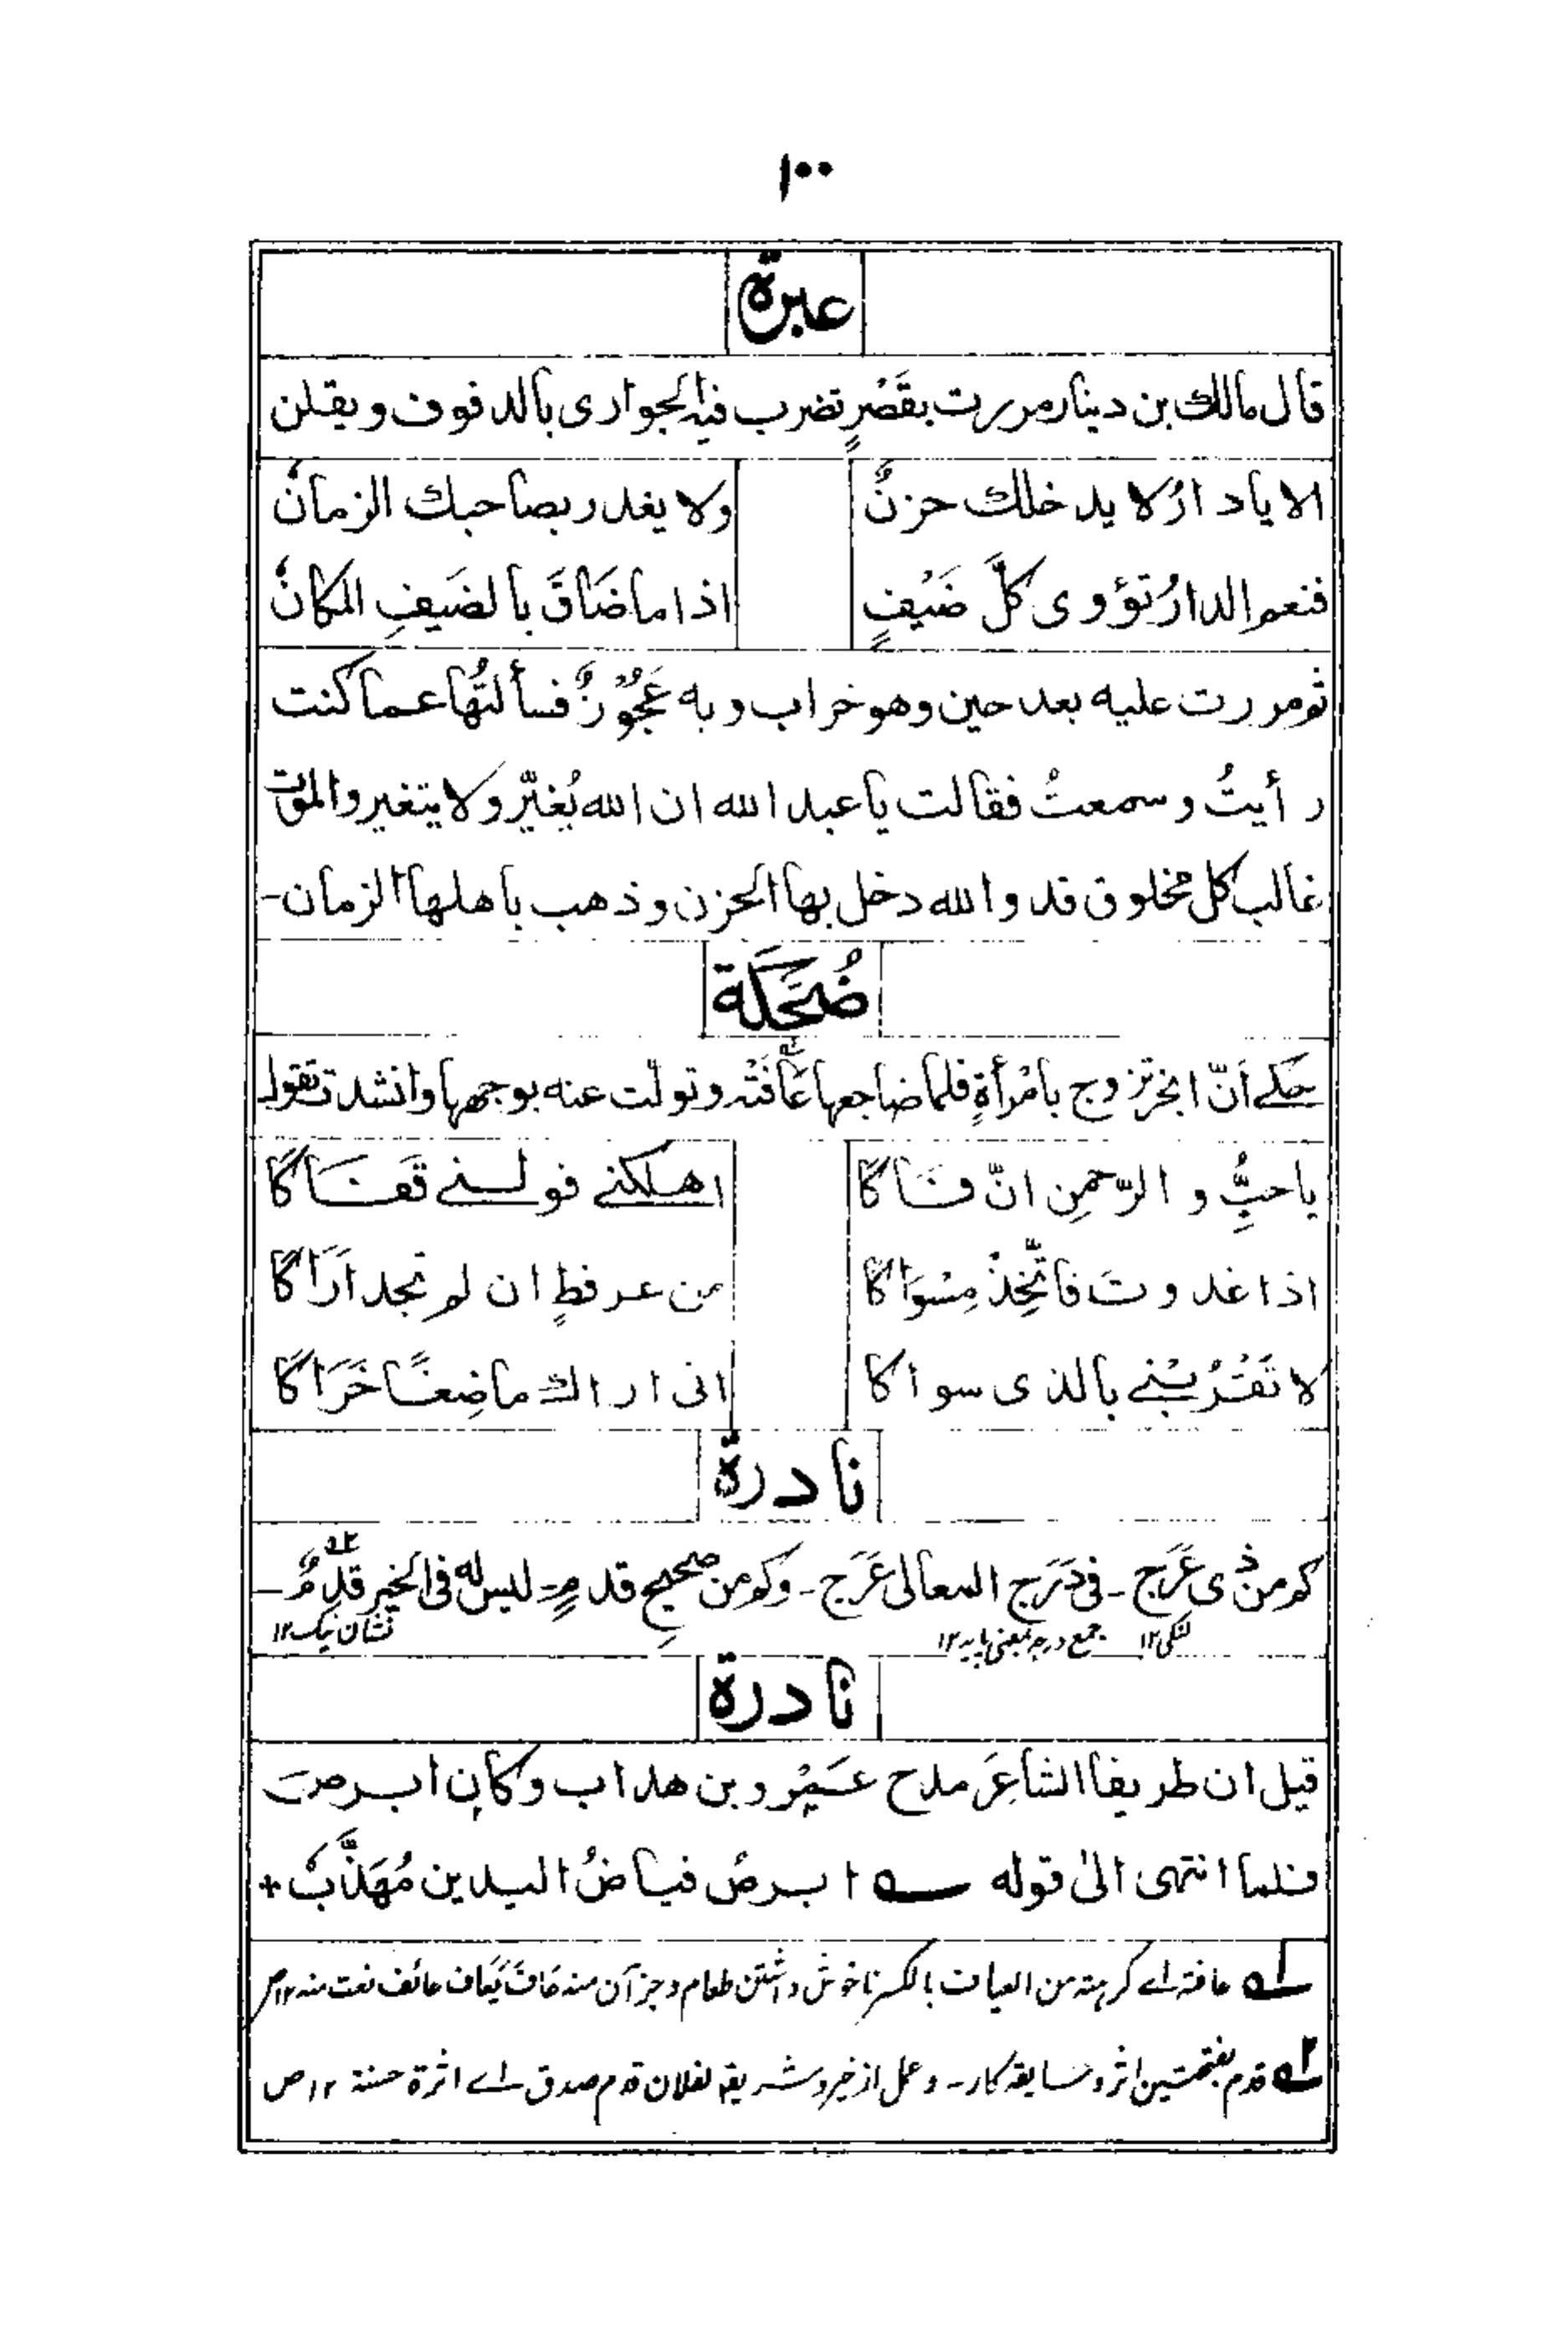 ١٠٠
عبرة
قال مالك بن دينار مررت بقَصْرٍ تضرب فيه الجوارى بالدفوف و يقلن
الا يا دارُ لا يدخلك حزنٌ ولا يغدر بصاحبك الزمانُ
فنعم الدارُ تؤوى كلَّ ضَيْفٍ اذا ما ضَاقَ بالضَيفِ المكانُ
ثم مررت عليه بعد حين وهو خراب و به عَجُوْزٌ فسألتُها عما كنت
رأيتُ و سمعتُ فقالت يا عبد الله ان الله يُغيّر و لا يتغير والموت
غالب كل مخلوق قد والله دخل بها الحزن و ذهب باهلها الزمان-
ضُحَكَة
حكے اَنّ اٰخر تزوج بامْرأةٍ فلما ضاجعها عَافَتْه و تولّت عنه بوجهها وانشدت تقول
يا حبُّ و الرّحمنِ انّ فَاكَا اهلكنے فولنے قَفَاكَا
اذا غدوتَ فاتّخِذْ مِسْوَاكَا من عرفطٍ ان لم تجد اَرَاكَا
لا تَقْرُبْنے بالذى سواكا انى اراك ماضِغًا خَرَاكَا
نادرة
كم من ذى عَرَج - فى دَرَج المعالى عَرَج - وكم من صحيح قدمٍ - ليس له فى الخير قدمٌ -
لنگى١٢ جمع درجه بمعنى پايه ١٢ نشان نيك ١٢
نادرة
قيل ان طريفا الشاعِرَ مدح عَمْرو بن هداب و كان ابرص
فلما انتهى الىٰ قوله ؎ ابرصُ فياضُ اليدين مُهَذَّبٌ +
؎١ عافته اے كرهته من العياف بالكسر ناخوش داشتن طعام و جز آن منه عَافَ يَعَاف عائف نعت منه ١٢ص
؎٢ قدم بفتحتين اثر و سابقۀ كار - و عمل از خير و شر يقۀ لفلان قدم صدق اے اثرة حسنة ١٢ص